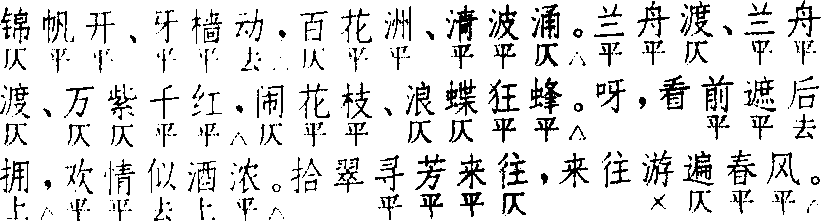 锦帆开、牙樯动，百花洲、清波涌。兰舟渡、兰舟
仄平平平平去△仄平平平平仄△平平仄平平
渡、万紫千红，闹花枝、浪蝶狂蜂。呀，看前遮后
仄仄仄平平△仄平平仄仄平平△平平去
拥，欢情似酒浓。拾翠寻芳来往，来往游遍春风。
上△平平去上平△平平平仄×仄平平△